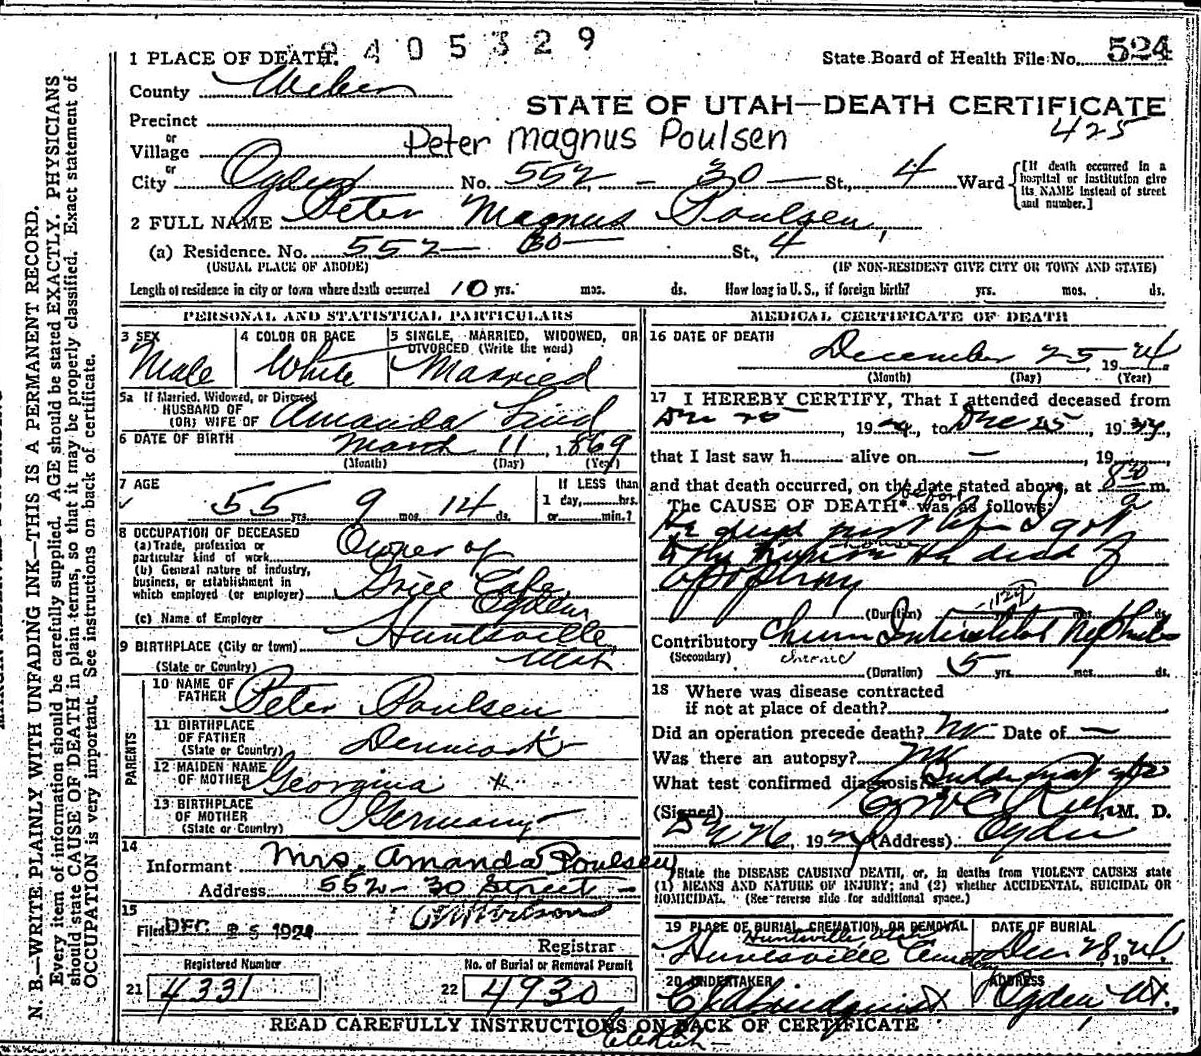 2405329
1 PLACE OF DEATH.
State Board of Health File No. 524
County Weber
STATE OF UTAH—DEATH CERTIFICATE
425
Precinct
or
Village
Peter Magnus Poulsen
or
City Ogden No. 552 — 30 — St., 4 Ward
[If death occurred in a hospital or institution give its NAME instead of street and number.]
2 FULL NAME Peter Magnus Poulsen,
(a) Residence. No. 552 — 30 — St., 4
(USUAL PLACE OF ABODE) (IF NON-RESIDENT GIVE CITY OR TOWN AND STATE)
Length of residence in city or town where death occurred 10 yrs. mos. ds. How long in U. S., if foreign birth? yrs. mos. ds.
PERSONAL AND STATISTICAL PARTICULARS
3 SEX
Male
4 COLOR OR RACE
White
5 SINGLE, MARRIED, WIDOWED, OR DIVORCED (Write the word)
Married
5a If Married, Widowed, or Divorced
HUSBAND OF
(OR) WIFE OF Amanda Lind
6 DATE OF BIRTH March 11, 1869
(Month) (Day) (Year)
7 AGE
55 yrs. 9 mos. 14 ds.
If LESS than
1 day, hrs.
or min.?
8 OCCUPATION OF DECEASED
(a) Trade, profession or particular kind of work Owner of
(b) General nature of industry, business, or establishment in which employed (or employer) Grill Cafe
Ogden
(c) Name of Employer
9 BIRTHPLACE (City or town) Huntsville
(State or Country) Utah
PARENTS
10 NAME OF FATHER Peter Poulsen
11 BIRTHPLACE OF FATHER (State or Country) Denmark
12 MAIDEN NAME OF MOTHER Georgina
13 BIRTHPLACE OF MOTHER (State or Country) Germany
14
Informant Mrs. Amanda Poulsen
Address 552 — 30 Street —
15
Filed DEC 25 1924
Registrar
Registered Number
21 4331
No. of Burial or Removal Permit
22 4930
MEDICAL CERTIFICATE OF DEATH
16 DATE OF DEATH
December 25, 1924
(Month) (Day) (Year)
17 I HEREBY CERTIFY, That I attended deceased from
Dec 25, 1924, to Dec 25, 1924,
that I last saw h alive on —, 19
and that death occurred, on the date stated above, at 8 30 m.
The CAUSE OF DEATH* was as follows:
He died just before I got
to the house He died of
apoplexy
(Duration) yrs. mos. ds.
Contributory Chronic Interstitial Nephritis
(Secondary) chronic
(Duration) 5 yrs. mos. ds.
18 Where was disease contracted
if not at place of death?
Did an operation precede death? No Date of —
Was there an autopsy? No
What test confirmed diagnosis?
(Signed) Rich, M. D.
1924 (Address) Ogden
*State the DISEASE CAUSING DEATH, or, in deaths from VIOLENT CAUSES state
(1) MEANS AND NATURE OF INJURY; and (2) whether ACCIDENTAL, SUICIDAL OR
HOMICIDAL. (See reverse side for additional space.)
19 PLACE OF BURIAL, CREMATION, OR REMOVAL
Huntsville, Utah
Huntsville Cemetery
DATE OF BURIAL
Dec 28, 1924
20 UNDERTAKER
Lindquist
ADDRESS
Ogden Ut.
READ CAREFULLY INSTRUCTIONS ON BACK OF CERTIFICATE
N. B.—WRITE PLAINLY WITH UNFADING INK—THIS IS A PERMANENT RECORD.
Every item of information should be carefully supplied. AGE should be stated EXACTLY. PHYSICIANS
should state CAUSE OF DEATH in plain terms, so that it may be properly classified. Exact statement of
OCCUPATION is very important. See instructions on back of certificate.